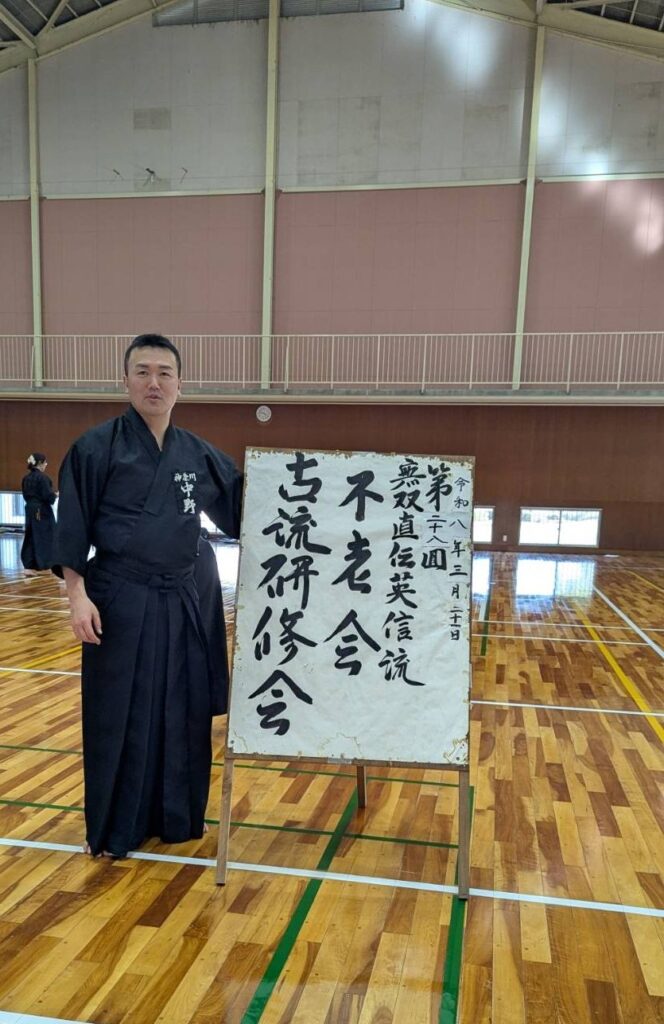 令和八年三月二十一日
第二十八回
無双直伝英信流
不老会
古流研修会
神奈川
中野